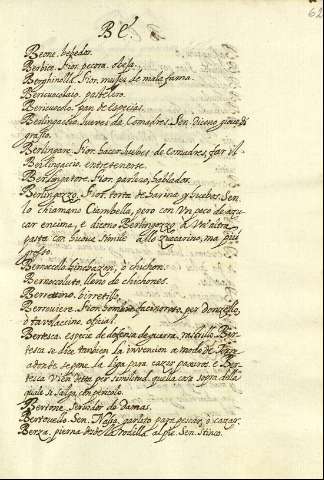 62
BE.
Beone, bebedor.
Berbice. Fior. pecora. obesa.
Berghinella. Fior. muger de mala fama.
Bericuocolaio. pastelero.
Bericuocolo. pan de especias.
Berlingaccio. Jueves de Comadres. Sen. Dicono giovedi
grasso.
Berlingare. Fior. hazer Juebes de Comadres, far il
Berlingaccio. entretenerse.
Berlingatore. Fior. parlaco, hablador.
Berlingozzo. Fior. torta de harina y huebos. Sen.
lo chiamano Ciambella, pero con un poco de azu-
car encima, e dicono Berlingozzo à un'altra
pasta con huova simile allo zuccarino, ma più
grosso.
Bernocolo. hinchazon, ò chichon.
Bernocoluto. lleno de chichones.
Berrettino. birretillo.
Berroviere. Fior. hombre facinoroso, per donzello,
ò tavolaccino, oficial.
Bertesca. especie de defensa de guerra, rastrillo. Ber-
tesca se dice tambien la invencion a modo de
adonde se pone la liga para cazar paxaros. e Ber-
tesca vien detto per similitud. quella cosa sopra della
quale si salga con pericolo.
Bertone. servidor de Damas.
Bertovello. Sen. Nassa. para pescar, ò cazar.
Berza. pierna desde la rodilla al pie. Sen. Stinco.